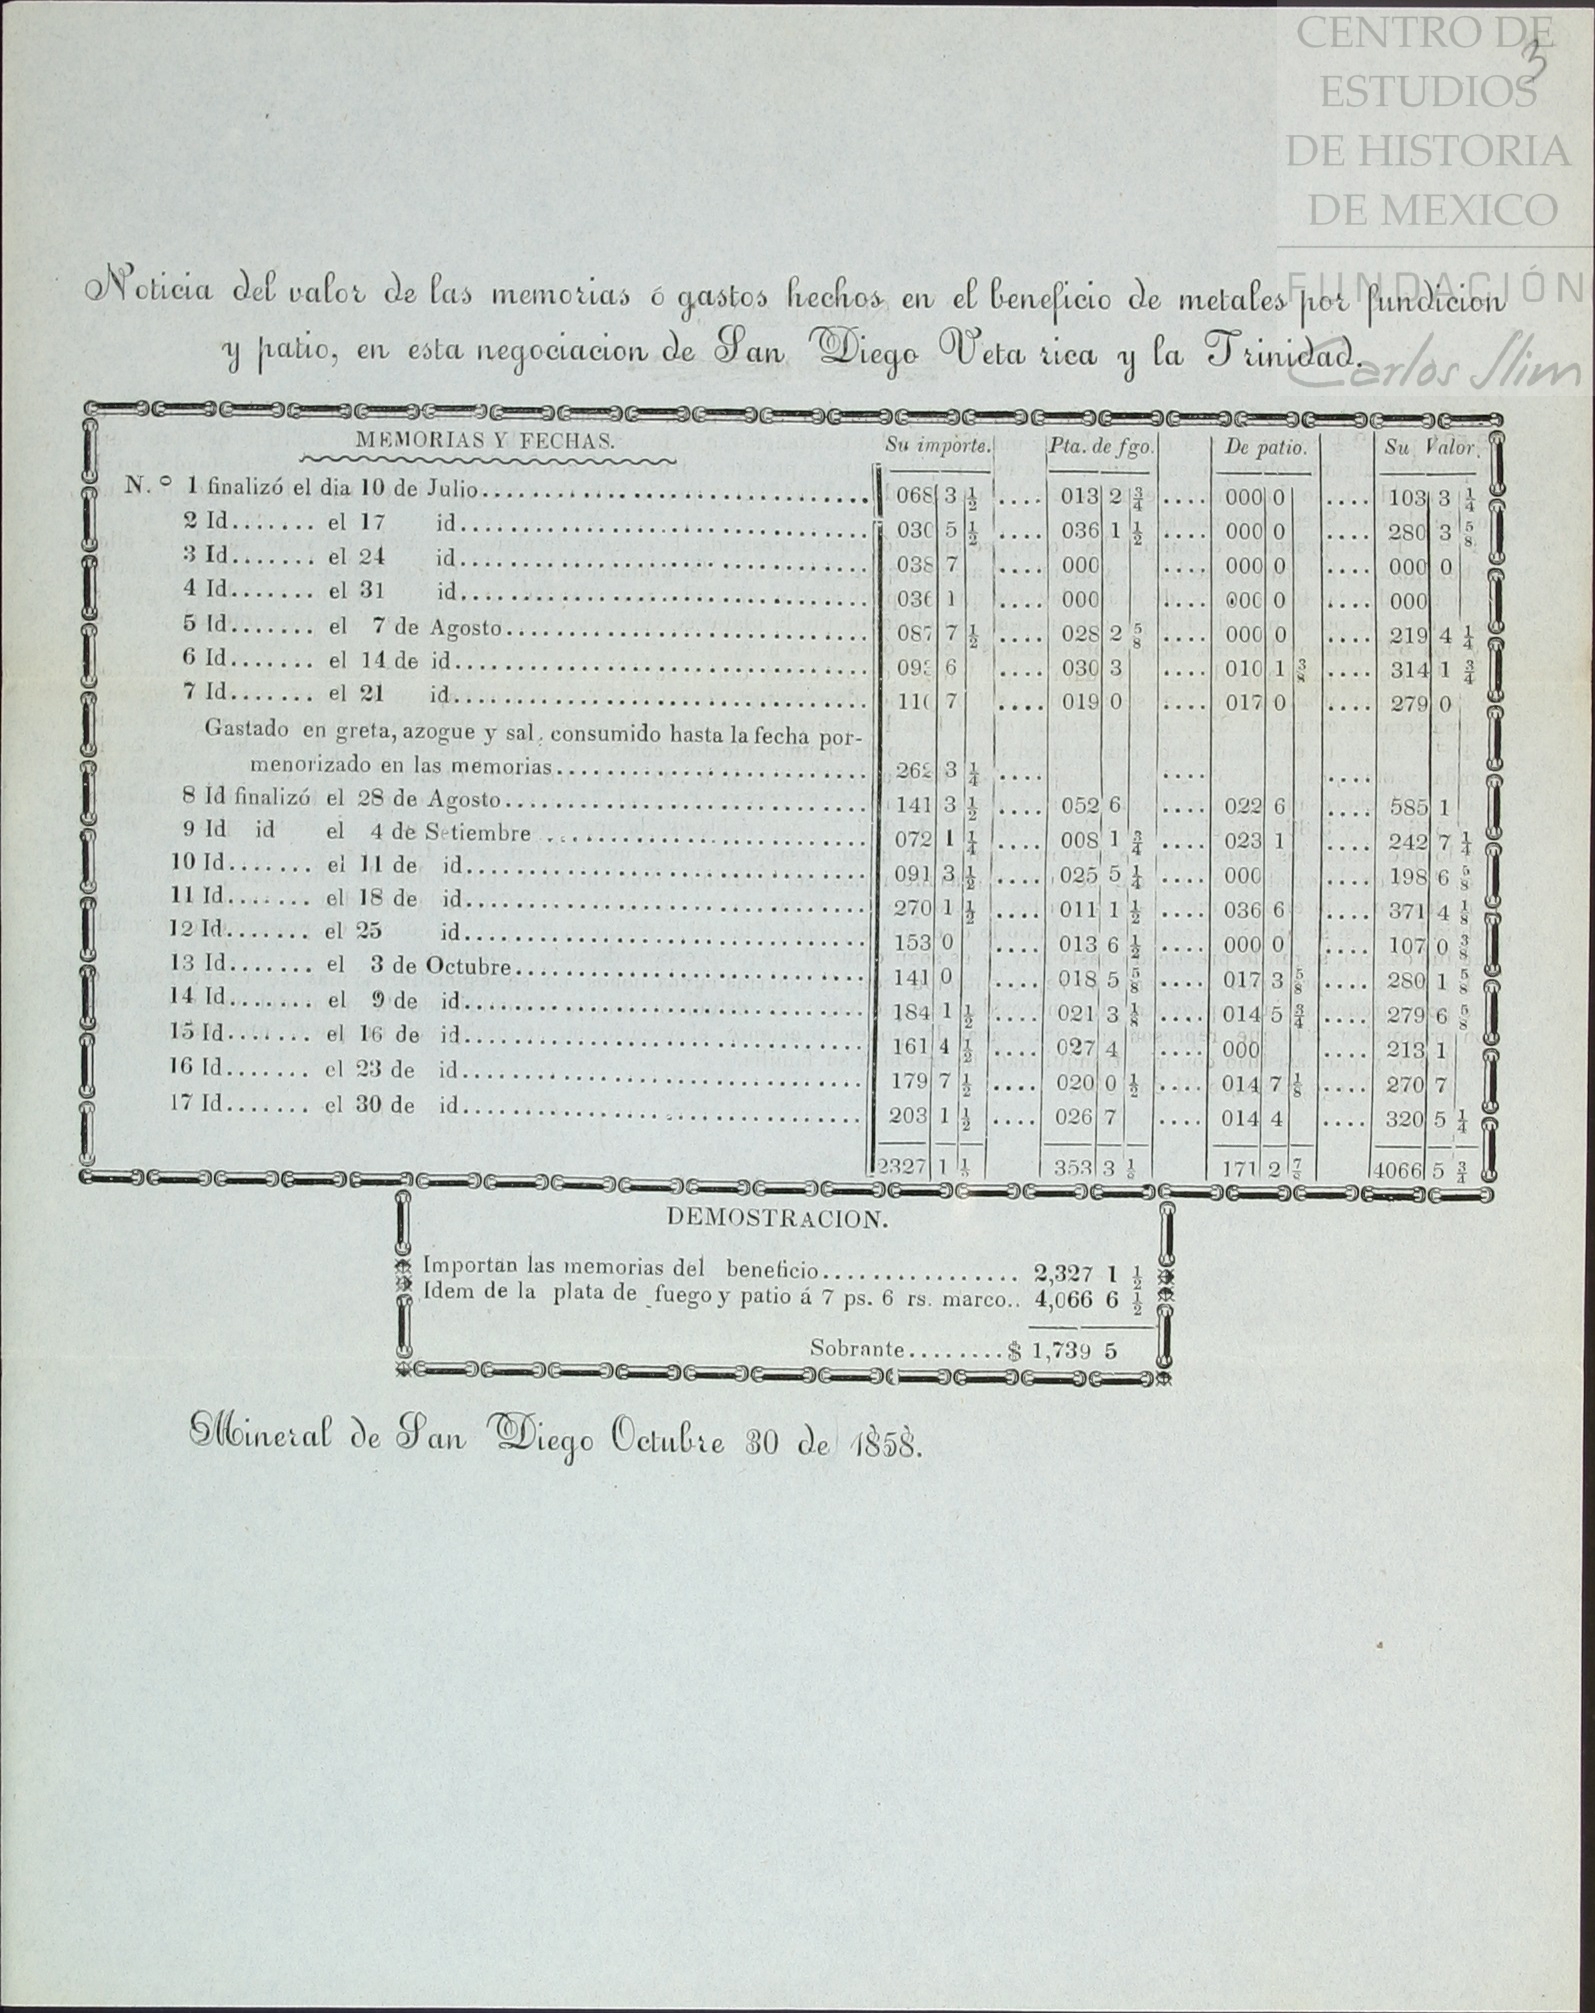 CENTRO DE
ESTUDIOS
DE HISTORIA
DE MEXICO
FUNDACIÓN
Carlos Slim
3
Noticia del valor de las memorias ó gastos hechos en el beneficio de metales por fundicion
y patio, en esta negociacion de San Diego Veta rica y la Trinidad.
MEMORIAS Y FECHAS. Su importe. Pta. de fgo. De patio. Su Valor.
N.º 1 finalizó el dia 10 de Julio.... 068 3 1/2 .... 013 2 3/4 .... 000 0 .... 103 3 1/4
2 Id....... el 17 id.... 030 5 1/2 .... 036 1 1/2 .... 000 0 .... 280 3 5/8
3 Id....... el 24 id.... 038 7 .... 000 .... 000 0 .... 000 0
4 Id....... el 31 id.... 036 1 .... 000 .... 000 0 .... 000
5 Id....... el 7 de Agosto.... 087 7 1/2 .... 028 2 5/8 .... 000 0 .... 219 4 1/4
6 Id....... el 14 de id.... 093 6 .... 030 3 .... 010 1 3/8 .... 314 1 3/4
7 Id....... el 21 id.... 110 7 .... 019 0 .... 017 0 .... 279 0
Gastado en greta, azogue y sal, consumido hasta la fecha por-
menorizado en las memorias.... 262 3 1/4 .... .... ....
8 Id finalizó el 28 de Agosto.... 141 3 1/2 .... 052 6 .... 022 6 .... 585 1
9 Id id el 4 de Setiembre .... 072 1 1/4 .... 008 1 3/4 .... 023 1 .... 242 7 1/4
10 Id....... el 11 de id.... 091 3 1/2 .... 025 5 1/4 .... 000 .... 198 6 5/8
11 Id....... el 18 de id.... 270 1 1/2 .... 011 1 1/2 .... 036 6 .... 371 4 1/8
12 Id....... el 25 id.... 153 0 .... 013 6 1/2 .... 000 0 .... 107 0 3/8
13 Id....... el 3 de Octubre.... 141 0 .... 018 5 5/8 .... 017 3 5/8 .... 280 1 5/8
14 Id....... el 9 de id.... 184 1 1/2 .... 021 3 1/8 .... 014 5 3/4 .... 279 6 5/8
15 Id....... el 16 de id.... 161 4 1/2 .... 027 4 .... 000 .... 213 1
16 Id....... el 23 de id.... 179 7 1/2 .... 020 0 1/2 .... 014 7 1/8 .... 270 7
17 Id....... el 30 de id.... 203 1 1/2 .... 026 7 .... 014 4 .... 320 5 1/4
2327 1 1/2 353 3 1/8 171 2 7/8 4066 5 3/4
DEMOSTRACION.
Importan las memorias del beneficio................ 2,327 1 1/2
Idem de la plata de fuego y patio á 7 ps. 6 rs. marco.. 4,066 6 1/2
Sobrante........$ 1,739 5
Mineral de San Diego Octubre 30 de 1858.